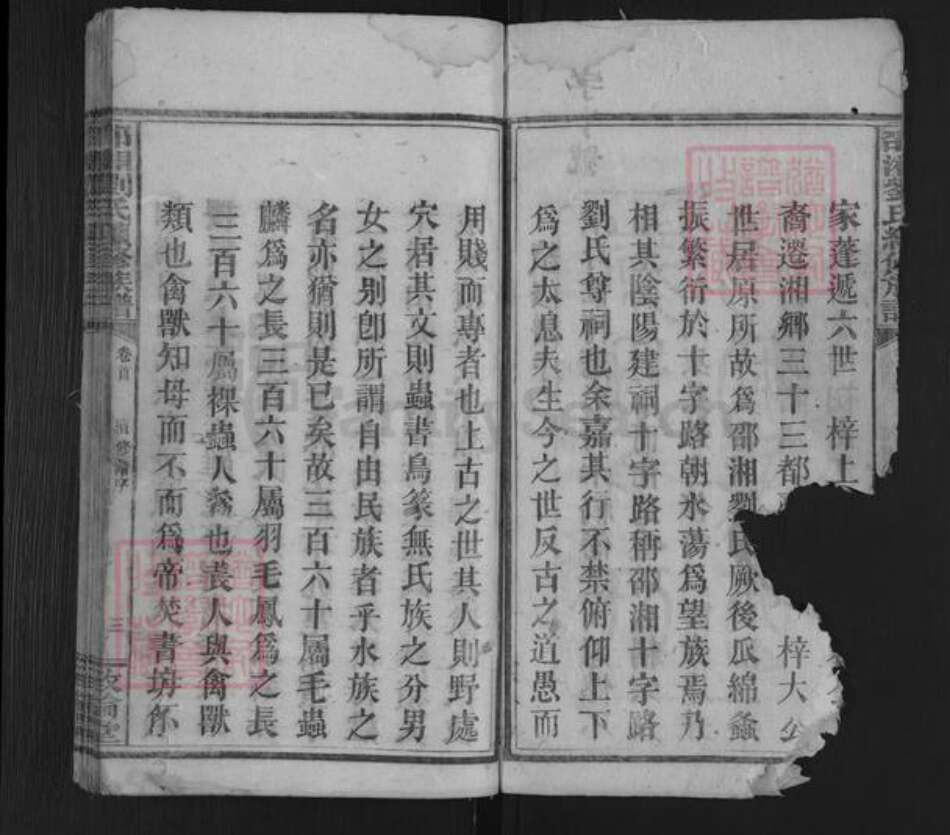 家蓬遞六世 梓上
裔遷湘鄉三十三都 梓大公
世居原所故爲邵湘劉氏厥後瓜綿螽
振繁衍於十字路朝水蕩爲望族焉乃
相其陰陽建祠十字路稱邵湘十字路
劉氏尊祠也余嘉其行不禁俯仰上下
爲之太息夫生今之世反古之道愚而
用賤而專者也上古之世其人則野處
穴居其文則蟲書鳥篆無氏族之分男
女之別卽所謂自由民族者乎水族之
名亦猶則是已矣故三百六十屬毛蟲
麟爲之長三百六十屬羽毛鳳爲之長
三百六十屬倮蟲人爲也喪人與禽獸
類也禽獸知母而不而爲帝焚書坑
卷首
三